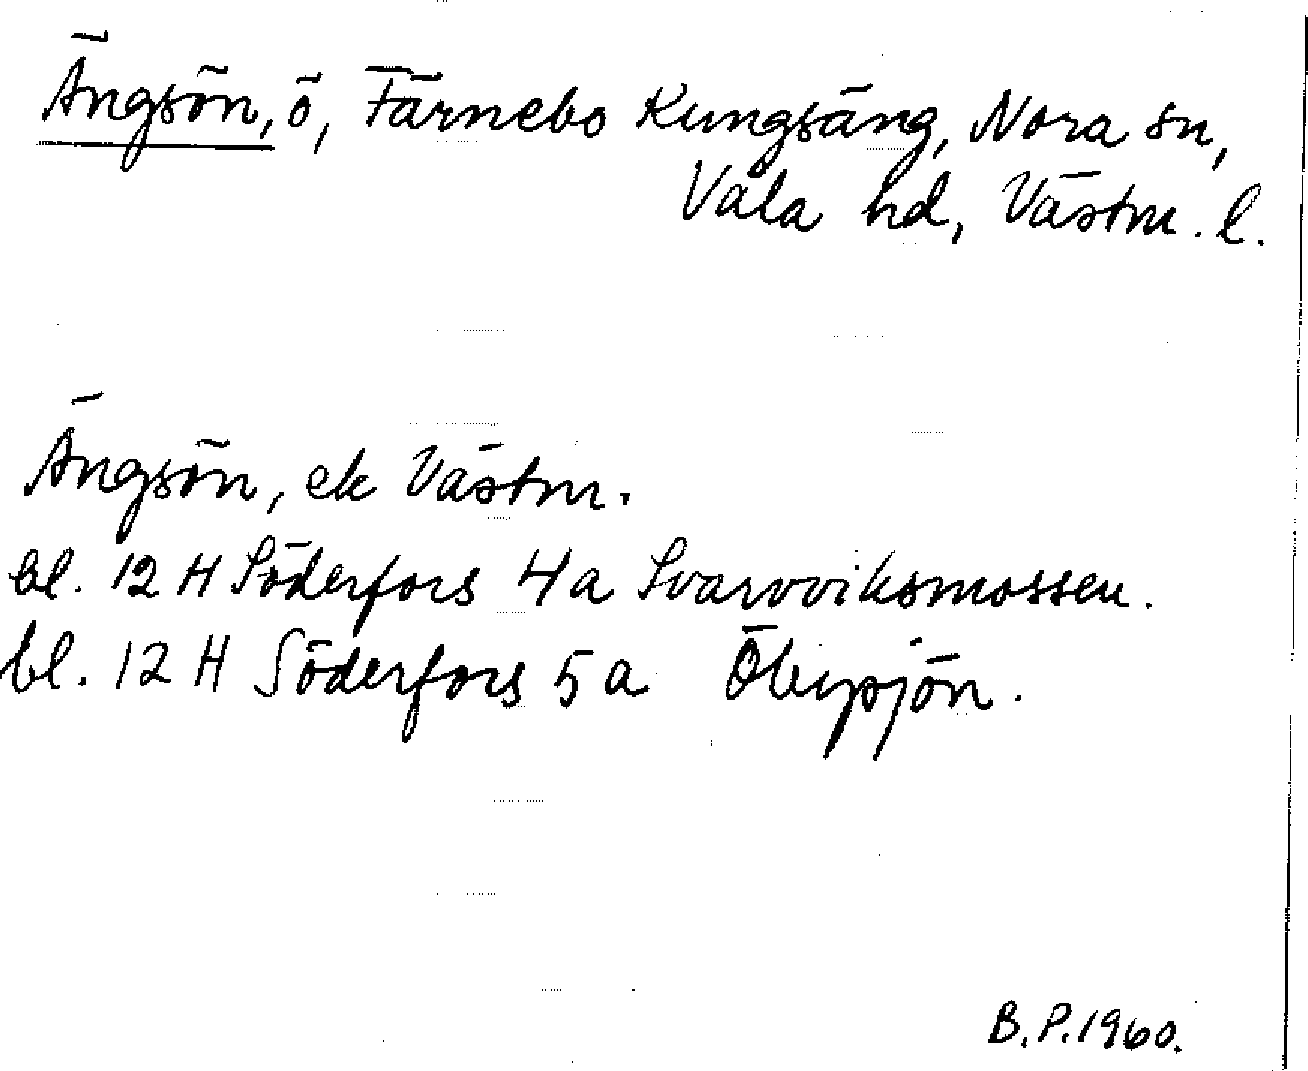 Ängsön, ö, Färnebo Kungsäng, Nora sn,
Våla hd, Västm. l.
Ängsön, ek Västm.
bl. 12 H Söderfors 4a Svarvviksmossen.
bl. 12 H Söderfors 5a Öbysjön.
B.P. 1960.